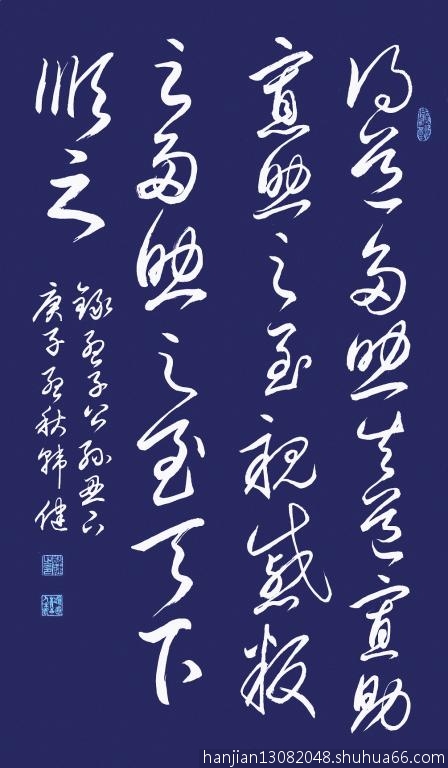 得道多助失道寡助
寡助之至親戚叛
之多助之至天下
順之
錄孟子公孫丑下
庚子孟秋韓健
hanjian13082048.shuhua66.com